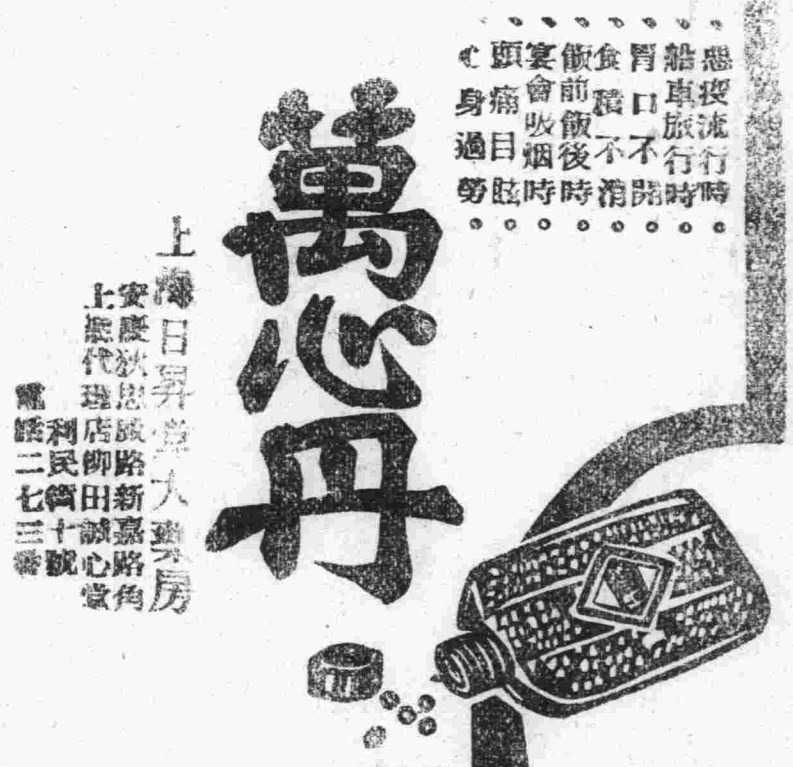 惡疫流行時
船車旅行時
胃口不開
食積不消
飯前飯後時
宴會吸烟時
頭痛目眩
心身過勞
萬心丹
上海日昇堂大藥房
安慶狄思威路新嘉路角
上海代理店柳田誠心堂
利民街十號
電話二七三番